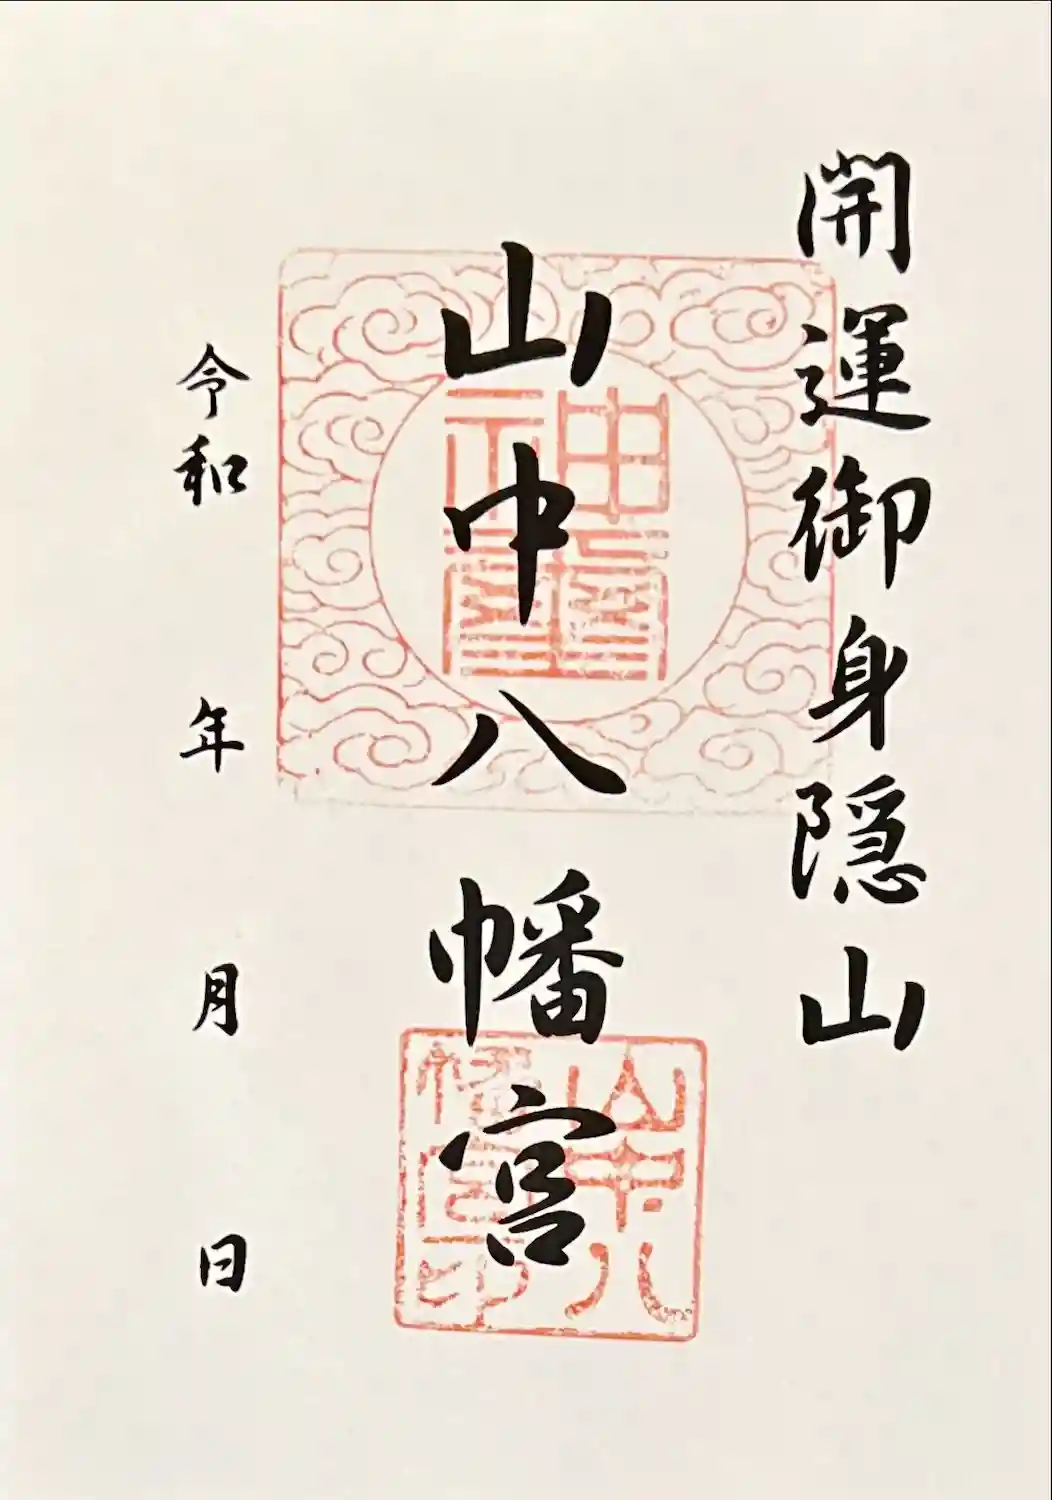 開運御身隠山
山中八幡宮
令和 年 月 日
神璽
山中八幡宮印